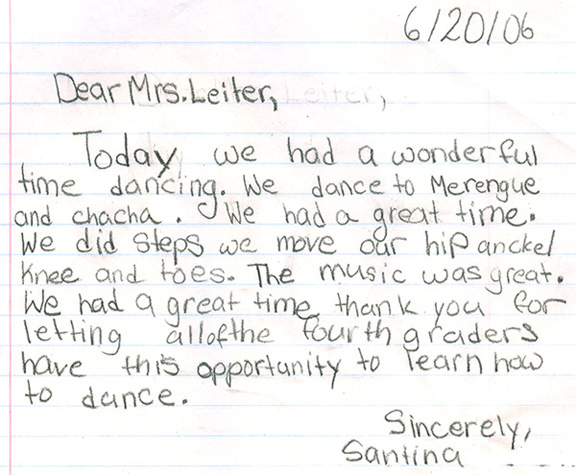 6/20/06
Dear Mrs. Leiter,
Today we had a wonderful
time dancing. We dance to Merengue
and chacha. We had a great time.
We did steps we move our hip anckel
Knee and toes. The music was great.
We had a great time thank you for
letting allofthe fourth graders
have this opportunity to learn how
to dance.
Sincerely,
Santina